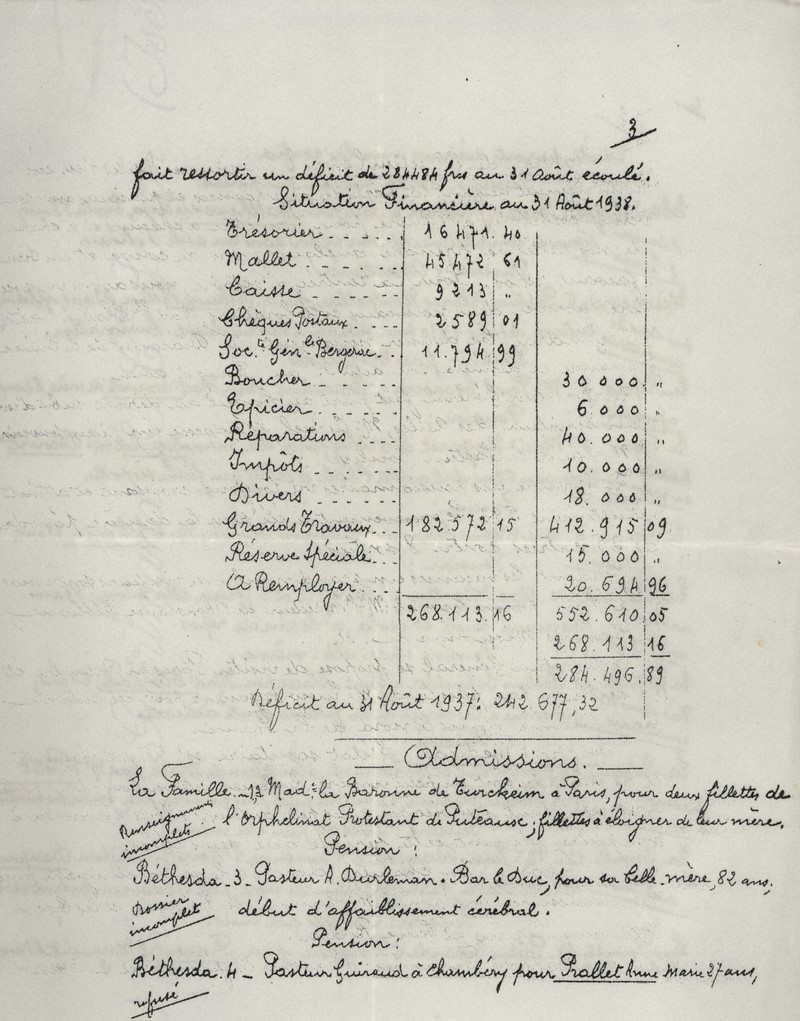 3
fait ressortir un déficit de 284484 frs au 31 Août écoulé.
Situation Financière au 31 Août 1938.
Trésorier..... 16471.40
Mallet...... 45472 61
Caisse...... 9213 "
Chèques Postaux.... 2589 01
Soc.té Gén.le Bergerac... 11.794 99
Boucher..... 30000. "
Epicier...... 6.000 "
Réparations.... 40.000 "
Impôts..... 10.000 "
Divers...... 18.000 "
Grands Travaux... 182.572 15 412.915 09
Réserve Spéciale... 15.000 "
A Remployer.... 20.694 96
268.113.16 552.610 05
268.113 16
284.496.89
Déficit au 31 Août 1937: 242 677,32
Admissions.
La Famille - 13 Mad.e la Baronne de Turckeim à Paris, pour deux fillettes de
Renseignements incomplets
l'Orphelinat Protestant de Puteausc; fillettes à éloigner de leur mère.
Pension:
Béthesda - 3 - Pasteur A. Durleman. Bar le Duc, pour sa belle-mère, 82 ans,
Dossier incomplet
début d'affaiblissement cérébral.
Pension:
Béthesda. 4 - Pasteur Guiraud à Chambéry pour Prallet Anne Marie 27 ans,
refusé